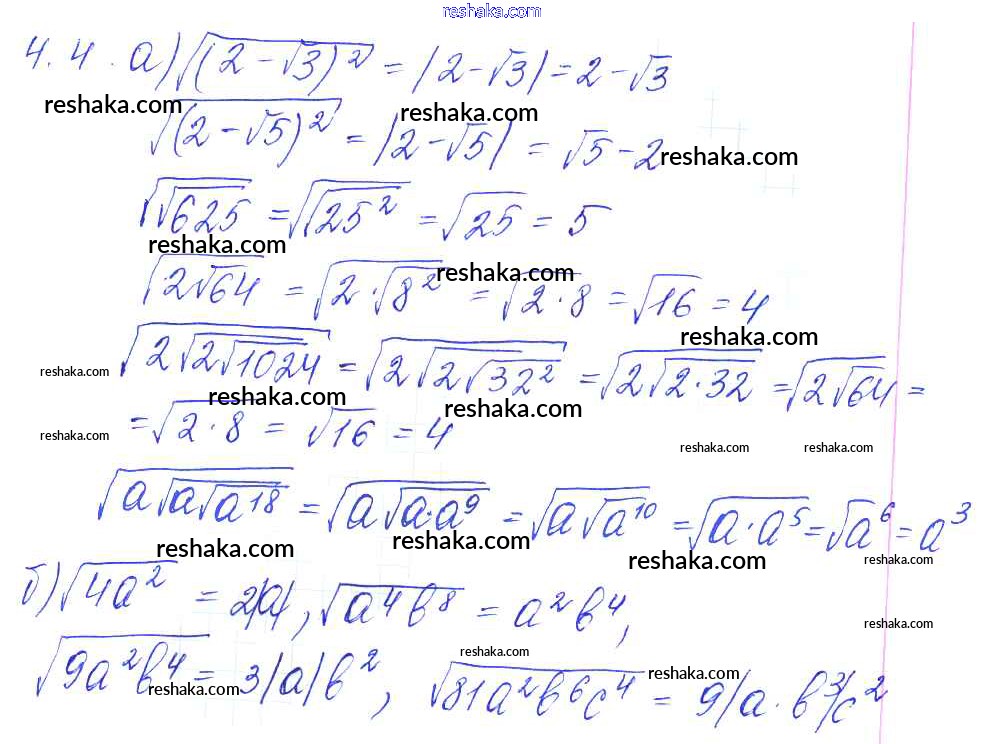 reshaka.com
4.4. а) √((2-√3)²) = |2-√3| = 2-√3
reshaka.com reshaka.com
√((2-√5)²) = |2-√5| = √5-2 reshaka.com
√(√625) = √(√(25²)) = √25 = 5
reshaka.com reshaka.com
√(2√64) = √(2·√(8²)) = √(2·8) = √16 = 4
reshaka.com
√(2√(2√1024)) = √(2√(2√(32²))) = √(2√(2·32)) = √(2√64) =
reshaka.com reshaka.com reshaka.com
= √(2·8) = √16 = 4
reshaka.com reshaka.com reshaka.com
√(a√(a√(a¹⁸))) = √(a√(a·a⁹)) = √(a√(a¹⁰)) = √(a·a⁵) = √(a⁶) = a³
reshaka.com reshaka.com reshaka.com reshaka.com
б) √(4a²) = 2|a|, √(a⁴b⁸) = a²b⁴,
reshaka.com
√(9a²b⁴) = 3|a|b², √(81a²b⁶c⁴) = 9|a·b³|c²
reshaka.com reshaka.com reshaka.com